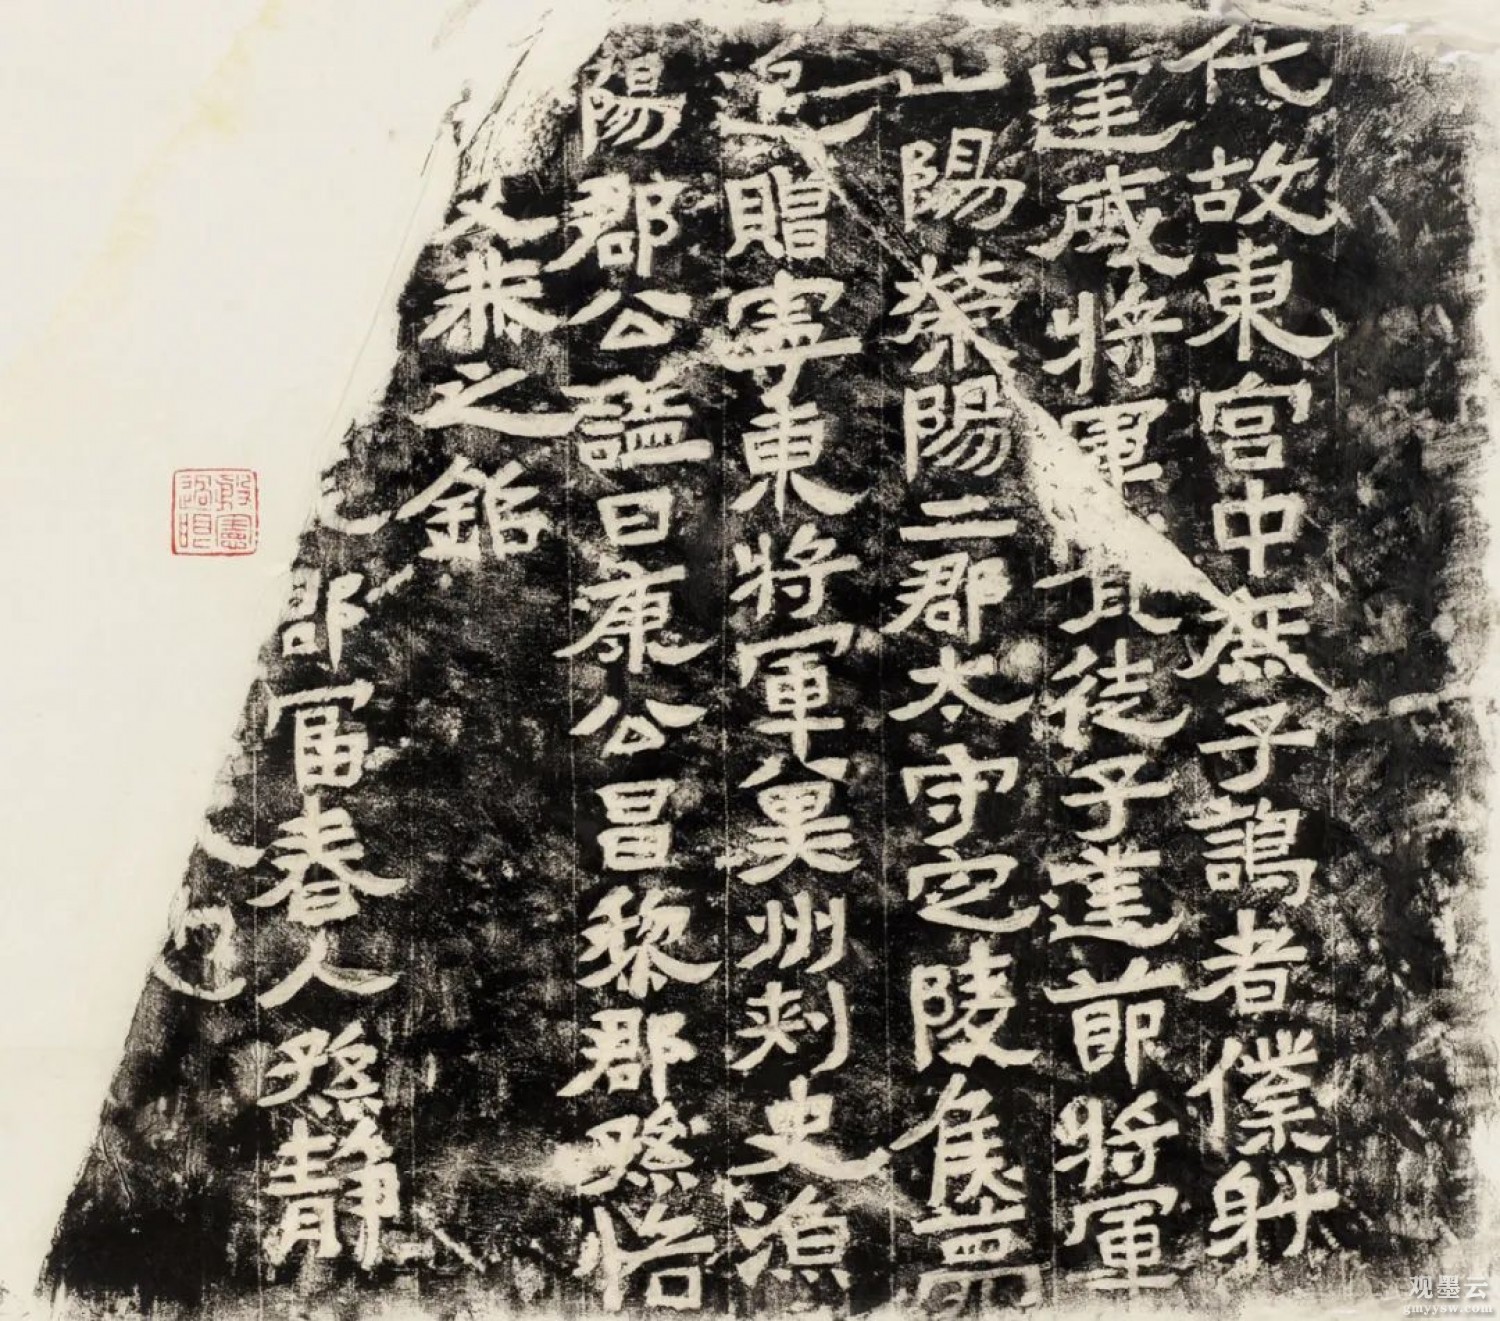 代故東宮中庶子謁者僕射
建威將軍員徒子建節將軍
山陽滎陽二郡太守定陵侯薨
追贈寧東將軍冀州刾史漁
陽郡公謚曰康公昌黎郡孫恪
文恭之銘
郡富春人孫静
观墨云
gmyysw.com